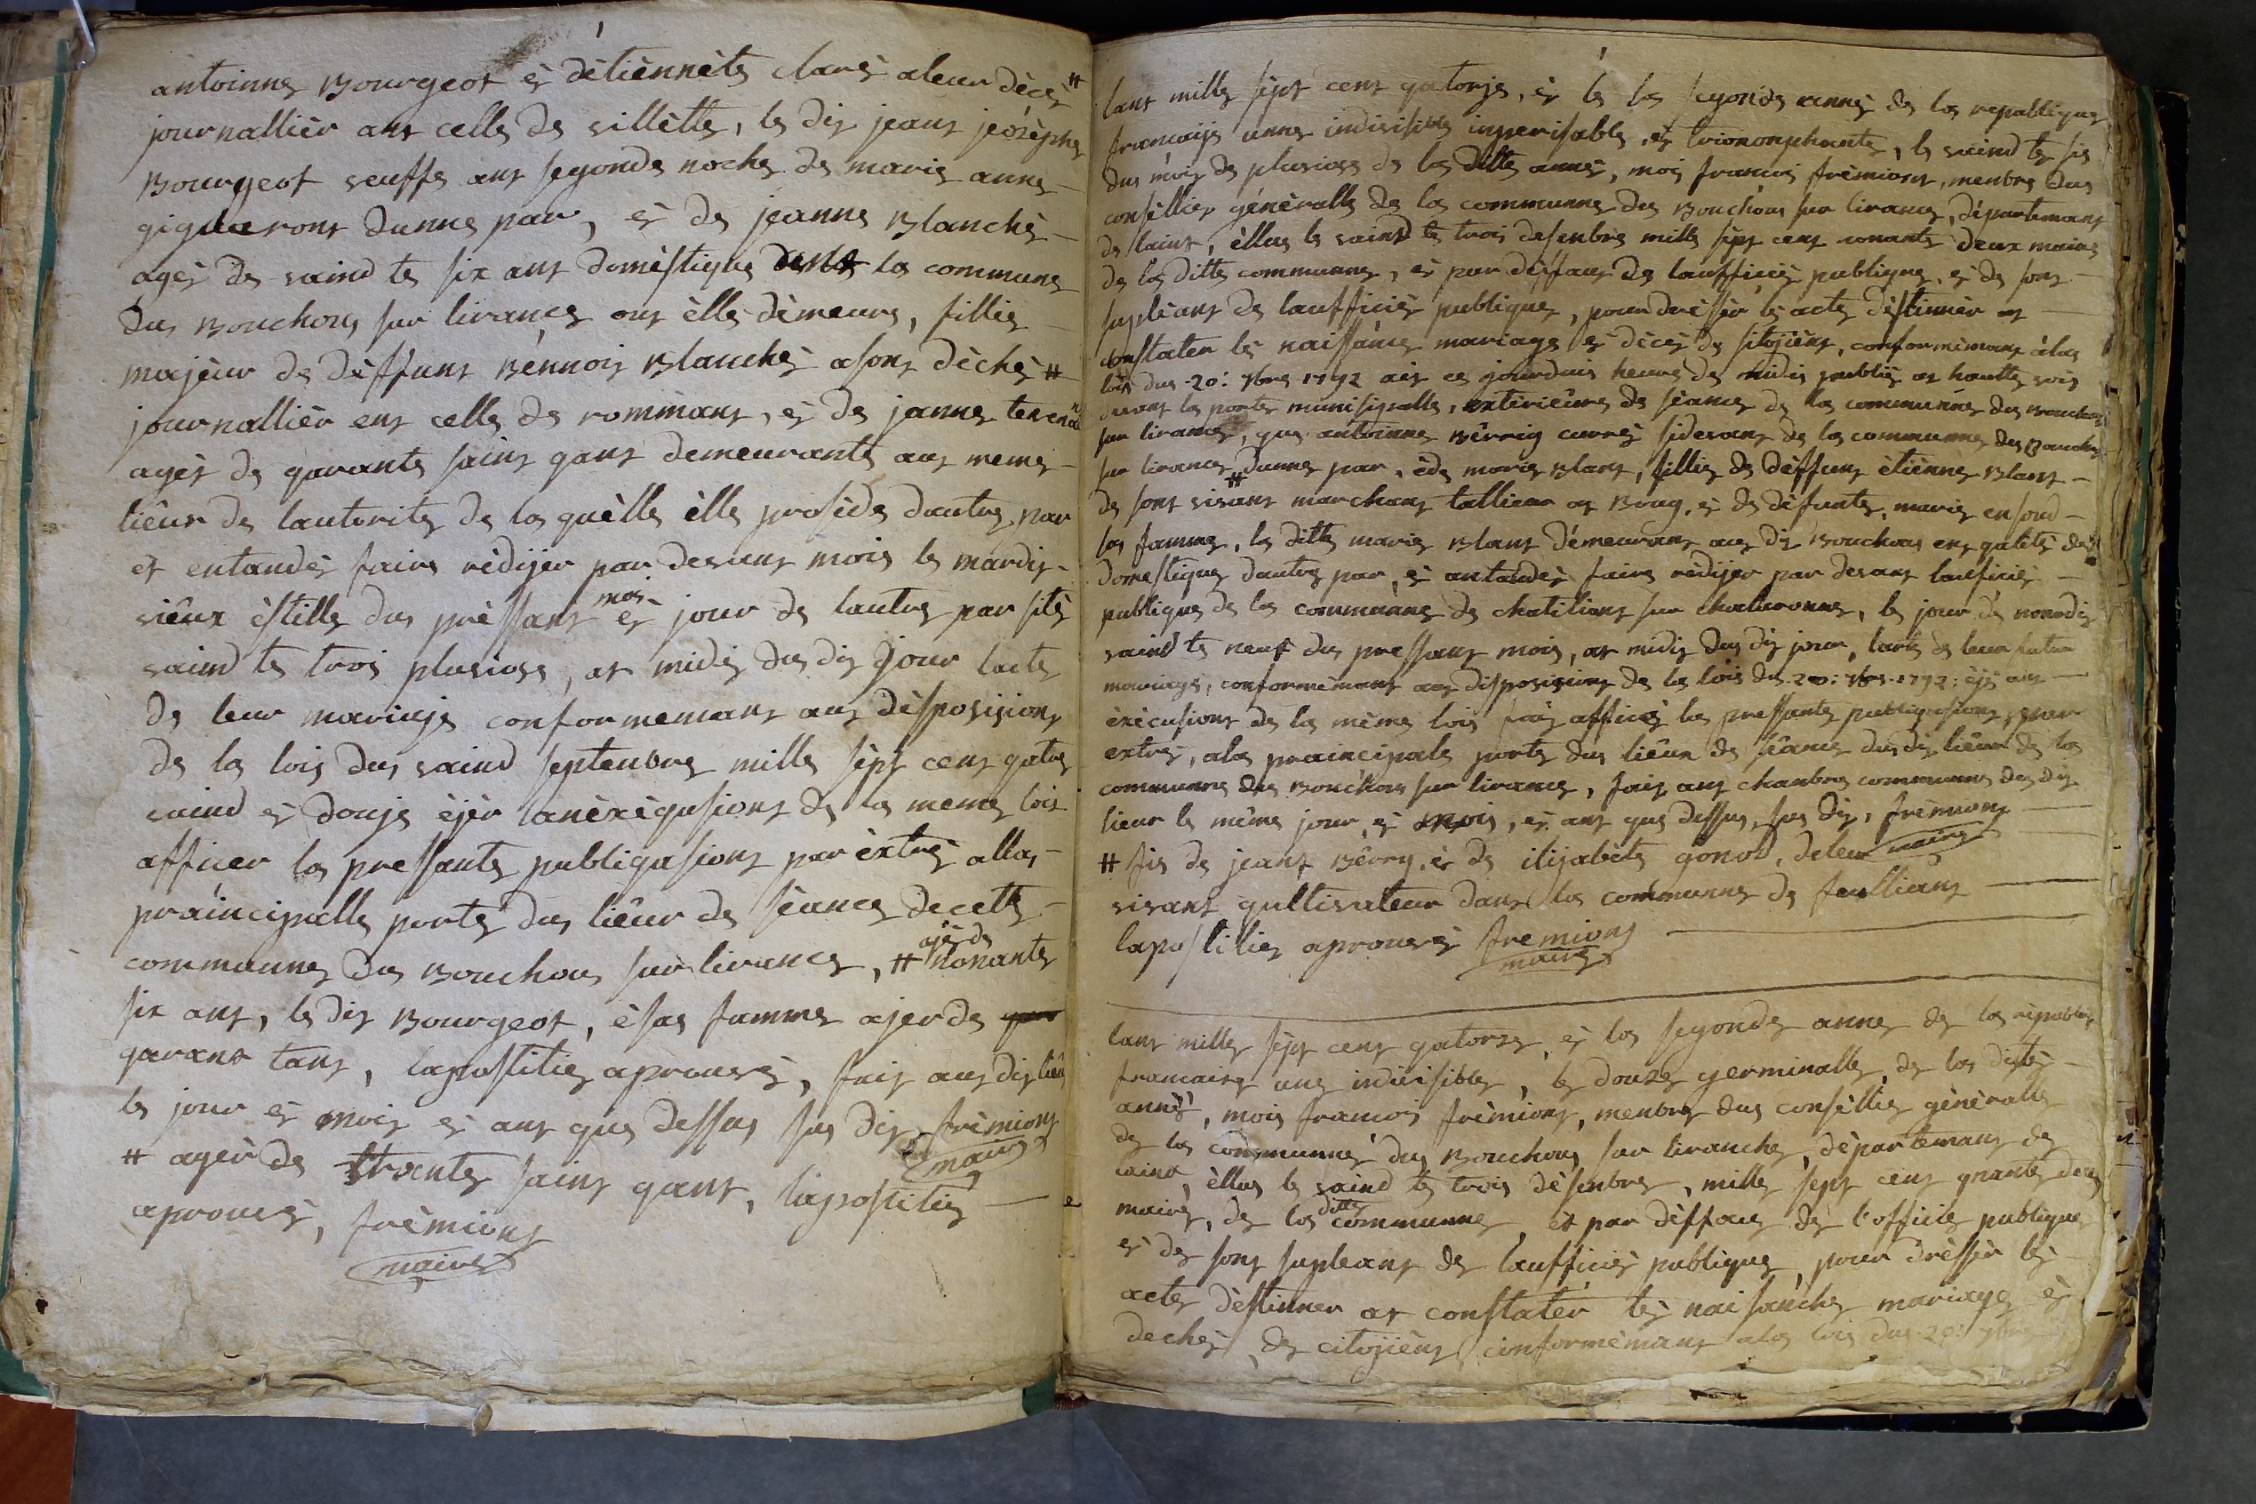 antoinne Bourgeot é détiennete claré aleur décé #
journallièr ant celle de villette, le dit jeant jeosèphe
Bourgeot veuffe ant segonde noche de marie anne
gigueront dunne par, é de jeanne Blanché
agé de vaind te six ant domèstique dans la commune
du Bouchou sur lirance out èlle dèmeure, fillie
majèur de dèffunt Bénnoit Blanché asont dèché #
journallièr ent celle de rommant, é de janne
agér de garante saint gant demeurante au meme
lieur de lautorite de la guèlle èlle prosède dautre par
et entandé faire rèdijer par devant mois le mardit
vieux èstille du prèssant mois é jour de lautre par sité
vaind te trois plusiose, at midi du dit jour lacte
de leur mariaje conformemant au dèsposisiont
de la lois du vaind septenbre mille sèpt cent gatre
vaind é douje èjér anèxègusiont de la meme lois
afficer la pressante publigasiont par èxtré alla
praincipalle porte du lièur de séance decette
commune du Bouchou sur lirance, # ajé de nonante
six ant, le dit Bourgeot, èsa famme ajer de
garant tant, lapostilie aprouvé, fait au dit lieu
le jour é mois é ant que dessus sus dit frèmiont
maire
# agér de trante saint gant, lapostilie
aprouvé, frèmiont
maire
lant mille sèpt cent gatorje, é la segonde anné de la republique
francaije unne indivisible inperisable, et trionomphante, le vaind te sis
du mois de plusiose de la ditte anné, mois francois frèmiont, menbre du
consèllier générralle de la commune du Bouchou sur lirance, département
de laint, èllu le vaind te trois desenbre mille sèpt cent nonante deux maire
de la ditte commune, é par dèffaut de laufficié publique, é de sont
suplèant de laufficié publique, pour dressér le acte dèstinnèr at
constater lé naissance mariage é décé de sitojiènt, conformèmant àla
lois du 20: 7bre 1792 ait ce jourduis heure de midis publié at hautte vois
devant la porte munisipalle, èxterièure de sèance de la commune du Bouchou
sur lirance, que antoinne Bèrrig curré sidevant de la commune du Bouchou
sur lirance # dunne par, éde marie Blant, fillie de dèffunt ètiènne Blant
de sont vivant marchant tallieur at Boug, é de dèfunte marie
sa famme, la ditte marie Blant dèmeurant au dit Bouchou ent galité de
domestique dautre par, é antandé faire rèdijer par devant laufficié
publique de la commune de chatiliont sur chalaronne, le jour de nonodit
vaind te neuf du pressant mois, at midit du dit jour, lacte de leur futur
mariage, conformèmant au disposisiont de la lois du 20: 7bre 1792: éjé ant
èxécusiont de la mème lois afficé la pressante publigasiont, par
extré, ala praincipale porte du lièur de sèance du dit lièur de la
commune du Bouchou sur lirance, fait ant chanbre commune du dit
lieur le mème jour é mois, é ant que dessus, sus dit, frèmiont
maire
# fis de jeant Bèrry, é de ilijabete gonod, deleur
vivant gultivateur dans la commune de
lapostilie aprouvé fremiont
maire
lant mille sèpt cent gatorze, é la segonde anne de la republique
francaise une indivisible, le douze germinalle, de la ditte
anné, mois francois frèmiont, menbre du consèllié générralle
de la communné du Bouchou sur liranche, dèpartemant de
laint, èllu le vaind te trois dèsenbre, mille sept cent deux
maire, de la ditte commune, et par dèffaut de l'officié publique
é de sont supleant de laufficié publique, pour drèssér lé
acte dèstinner at constatér lé naisanche mariage é
deché, de citojiènt, conformémant ala lois du 20: